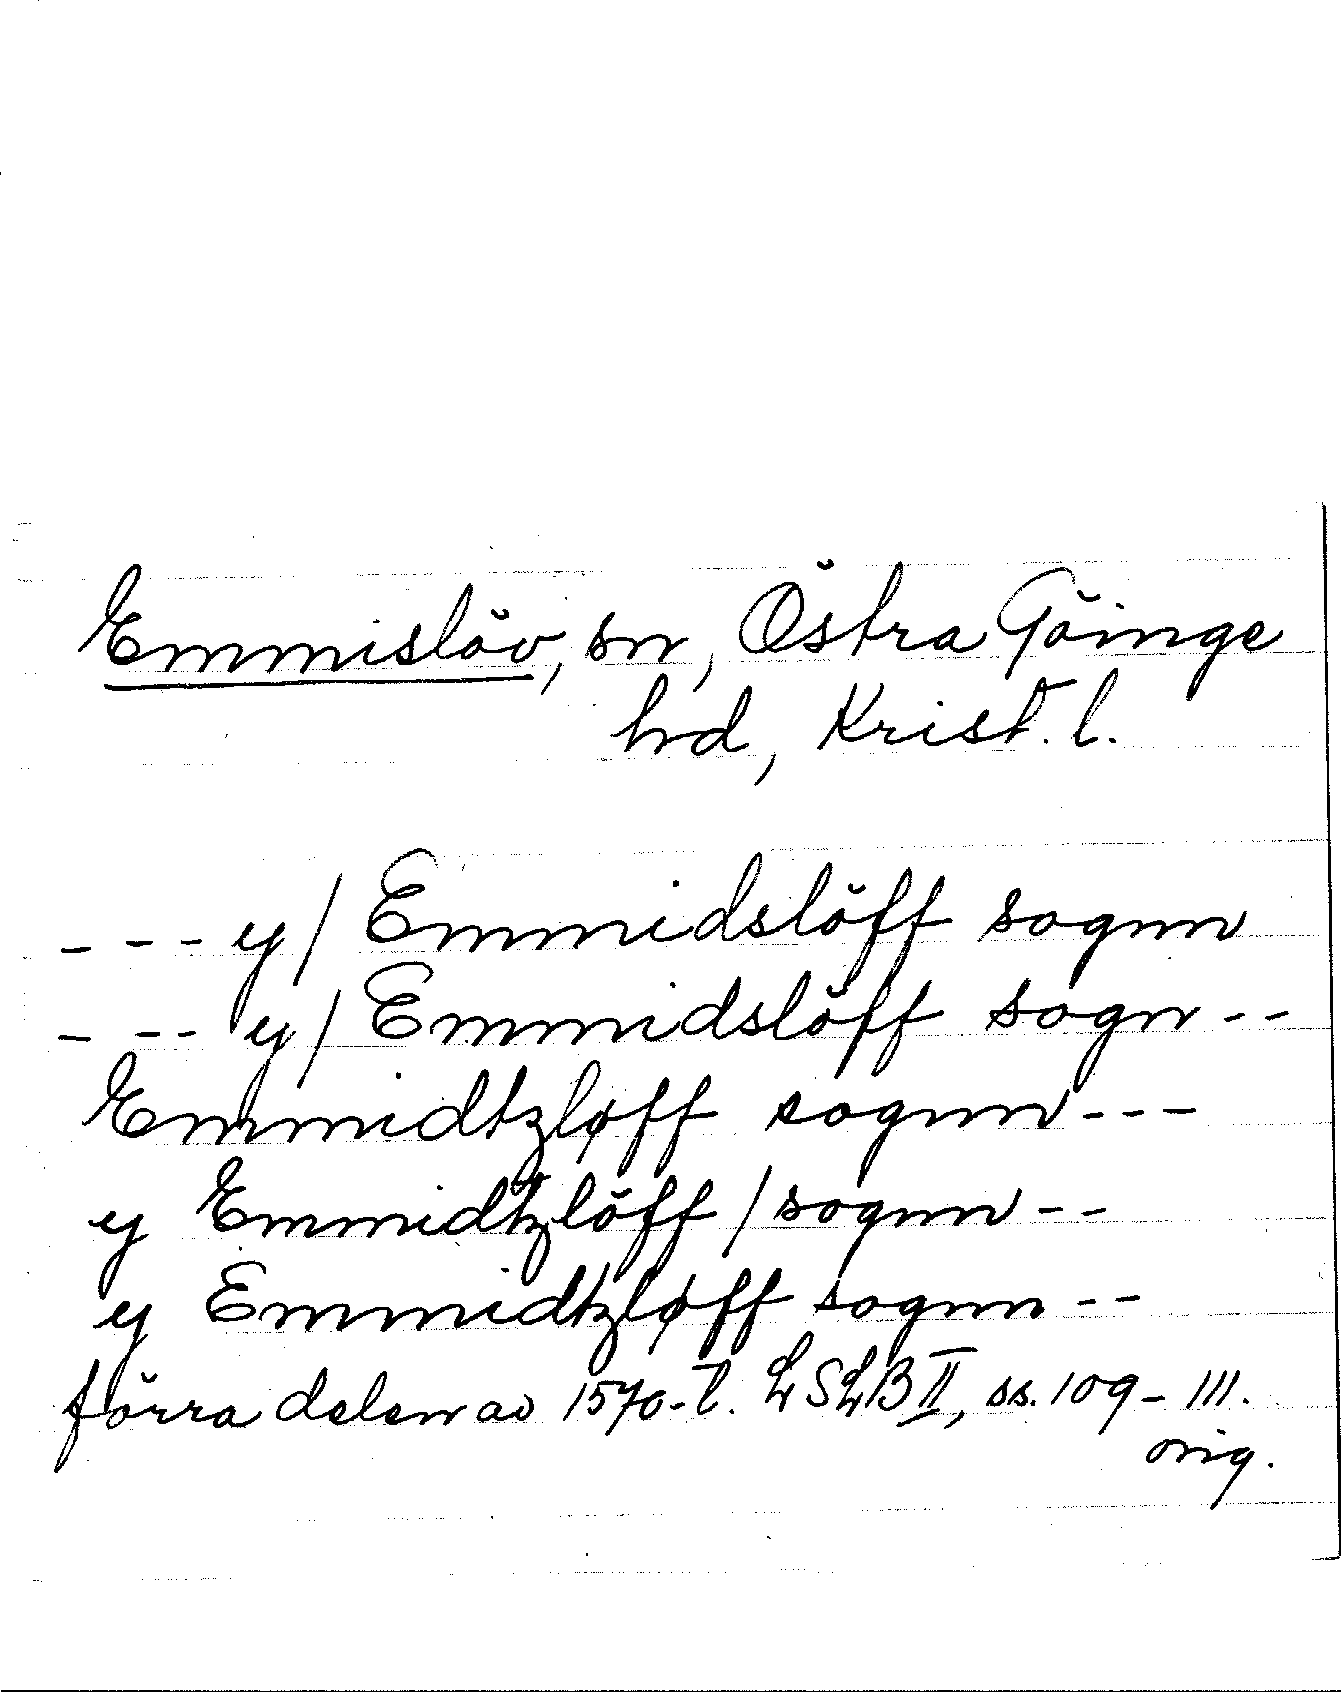 Emmislöv, sn, Östra Göinge
hd, Krist. l.
- - - y/ Emmidslöff sognn
- -- y/ Emmidslöff sogn --
Emmidtzløff sognn ---
y Emmidtzlöff / sognn --
y Emmidtzløff sognn --
förra delen av 1570-t. LSLB II, ss. 109-111.
orig.